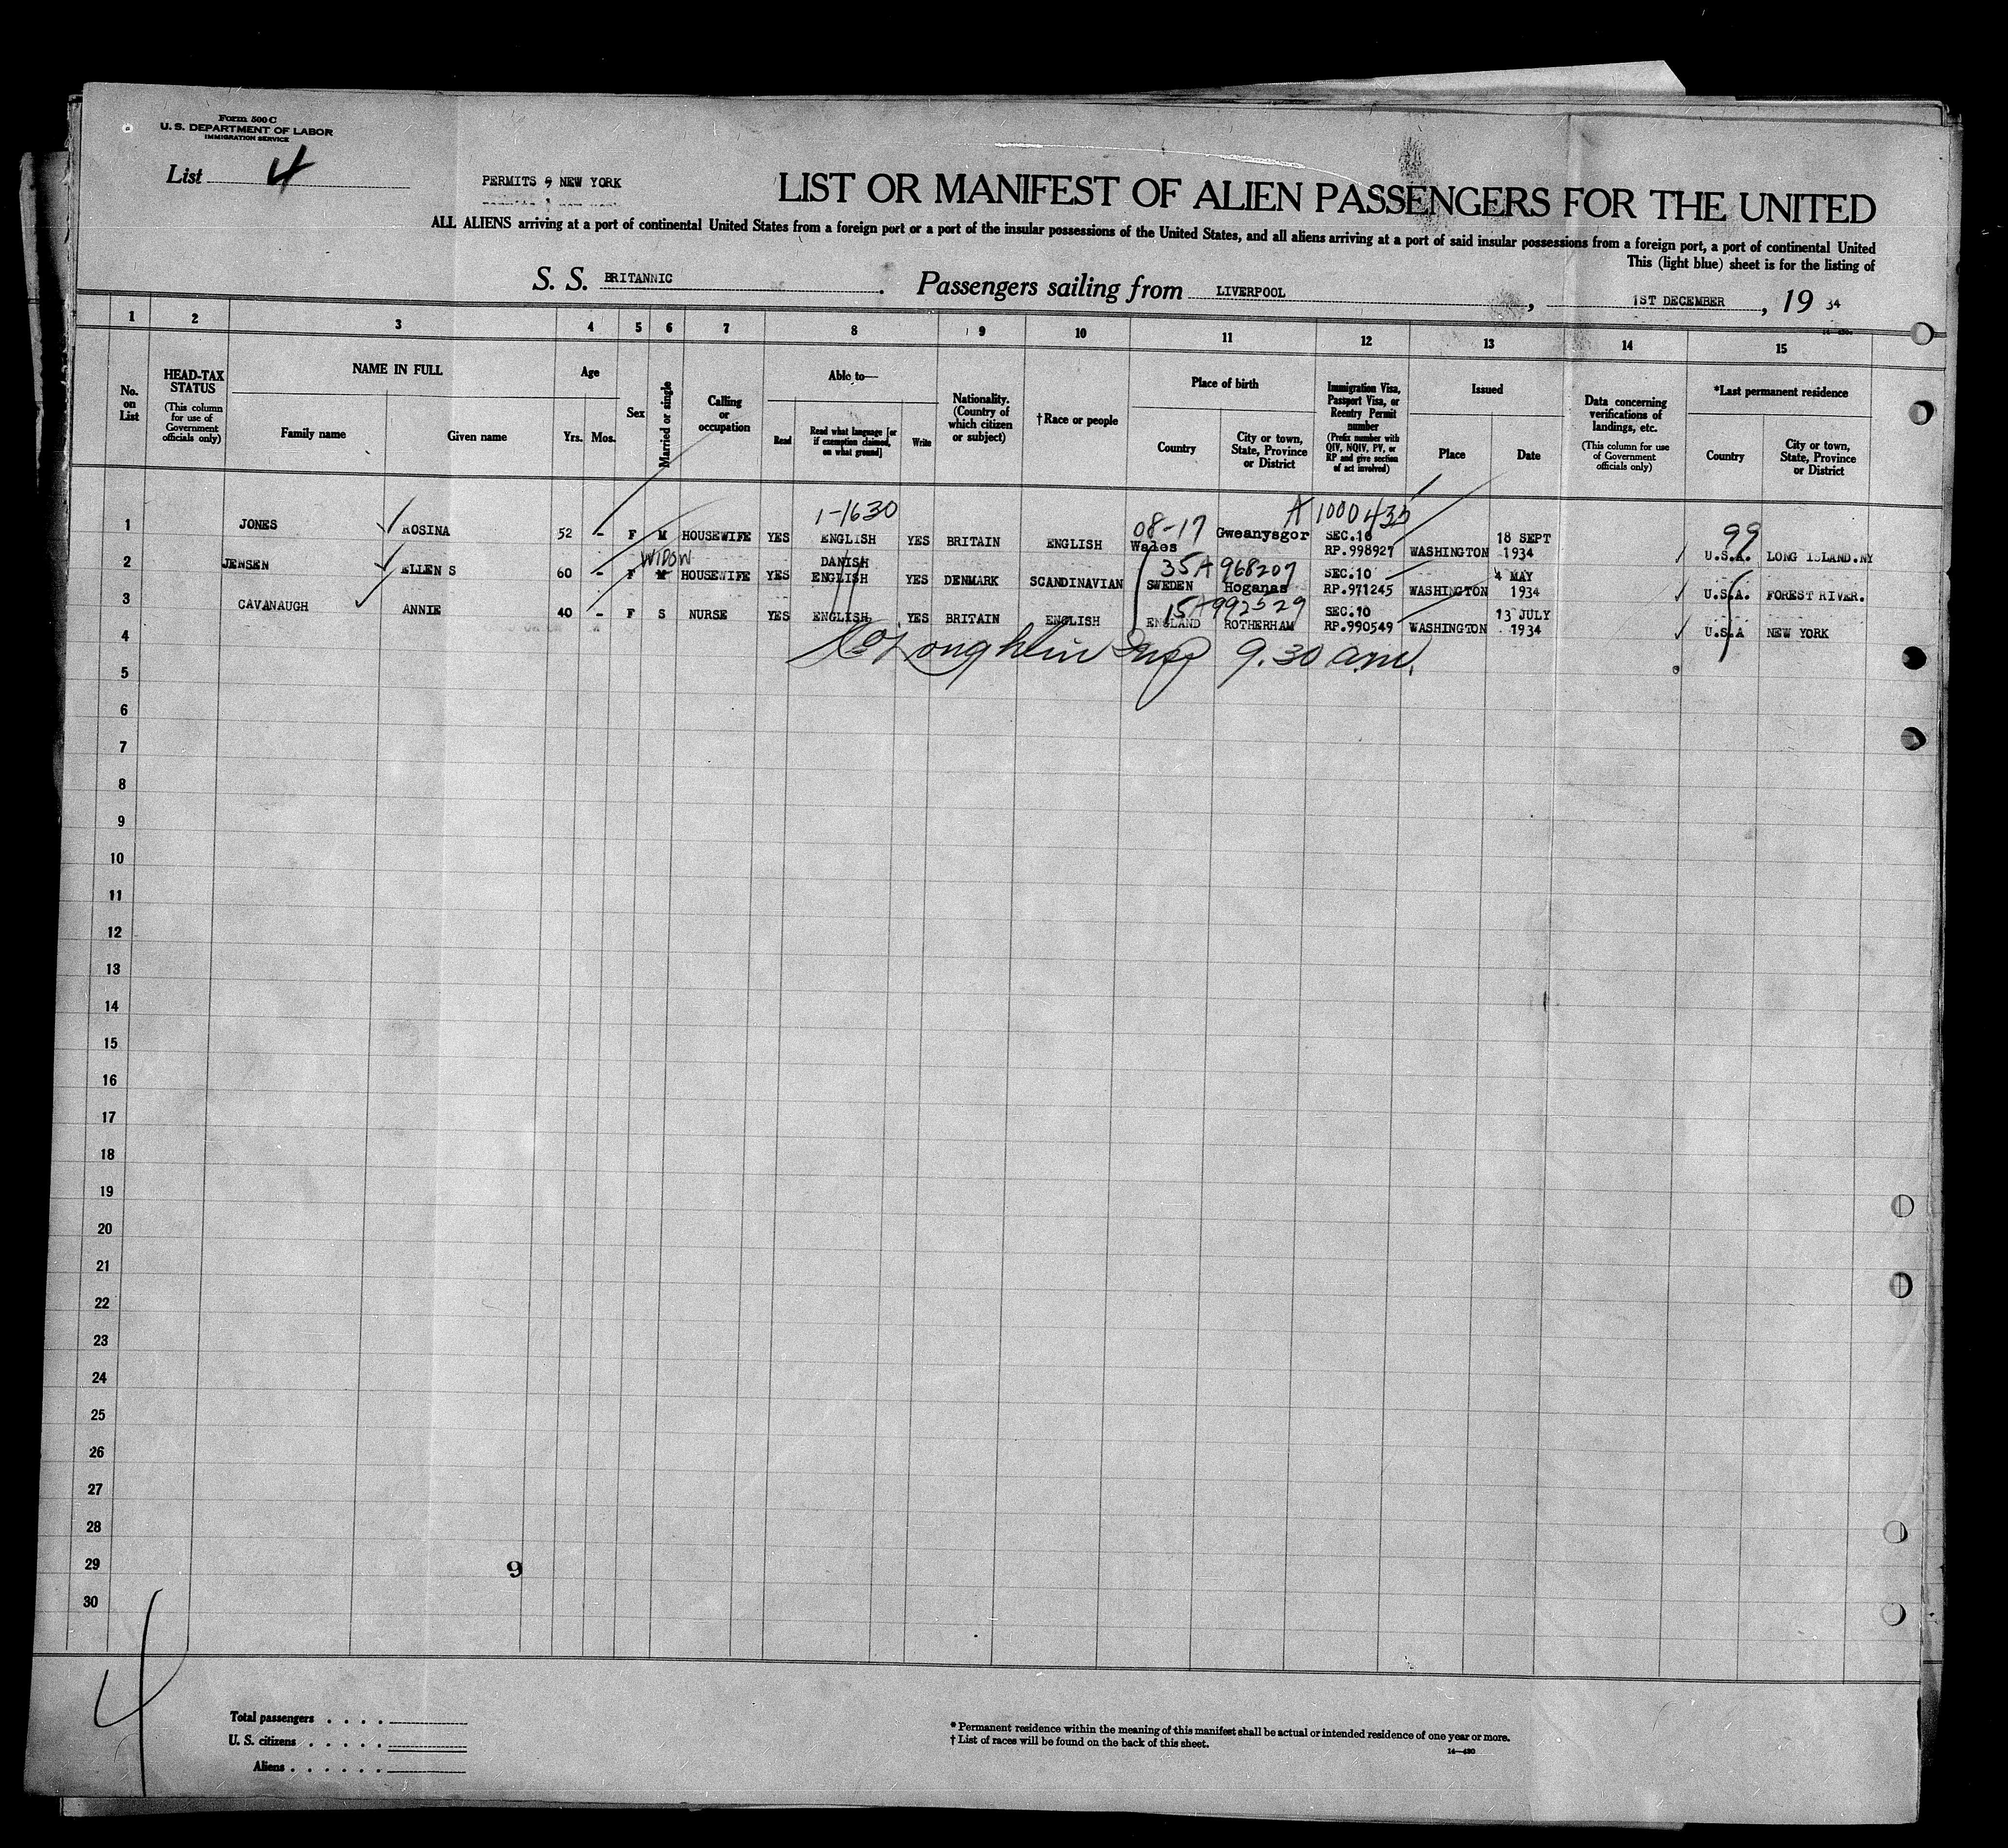 Form 500 C
U. S. DEPARTMENT OF LABOR
IMMIGRATION SERVICE
List 4
PERMITS 9 NEW YORK
LIST OR MANIFEST OF ALIEN PASSENGERS FOR THE UNITED
ALL ALIENS arriving at a port of continental United States from a foreign port or a port of the insular possessions of the United States, and all aliens arriving at a port of said insular possessions from a foreign port, a port of continental United
This (light blue) sheet is for the listing of
S. S. BRITANNIC. Passengers sailing from LIVERPOOL, 1ST DECEMBER, 19 34
1 2 3 4 5 6 7 8 9 10 11 12 13 14 15
No. on List
HEAD-TAX STATUS
(This column for use of Government officials only)
NAME IN FULL
Family name
Given name
Age
Yrs. Mos.
Sex
Married or single
Calling or occupation
Able to—
Read
Read what language [or if exemption claimed, on what ground]
Write
Nationality. (Country of which citizen or subject)
†Race or people
Place of birth
Country
City or town, State, Province or District
Immigration Visa, Passport Visa, or Reentry Permit number
(Prefix number with QIV, NQIV, PV, or RP and give section of act involved)
Issued
Place
Date
Data concerning verifications of landings, etc.
(This column for use of Government officials only)
*Last permanent residence
Country
City or town, State, Province or District
1-1630
08-17
A 1000430
99
1 JONES ROSINA 52 - F M HOUSEWIFE YES ENGLISH YES BRITAIN ENGLISH Wales Gweanysgor SEC.10 RP.998927 WASHINGTON 18 SEPT 1934 U.S.A. LONG ISLAND.NY
WIDOW
35 A 968207
2 JENSEN ELLEN S 60 - F M HOUSEWIFE YES DANISH ENGLISH YES DENMARK SCANDINAVIAN SWEDEN Hoganas SEC.10 RP.971245 WASHINGTON 4 MAY 1934 U.S.A. FOREST RIVER.
15 A 992529
3 CAVANAUGH ANNIE 40 - F S NURSE YES ENGLISH YES BRITAIN ENGLISH ENGLAND ROTHERHAM SEC.10 RP.990549 WASHINGTON 13 JULY 1934 U.S.A NEW YORK
4
9.30 a.m.
5
6
7
8
9
10
11
12
13
14
15
16
17
18
19
20
21
22
23
24
25
26
27
28
29
9
30
4
Total passengers . . . .
U. S. citizens . . . . .
Aliens . . . . . .
* Permanent residence within the meaning of this manifest shall be actual or intended residence of one year or more.
† List of races will be found on the back of this sheet.
14—430